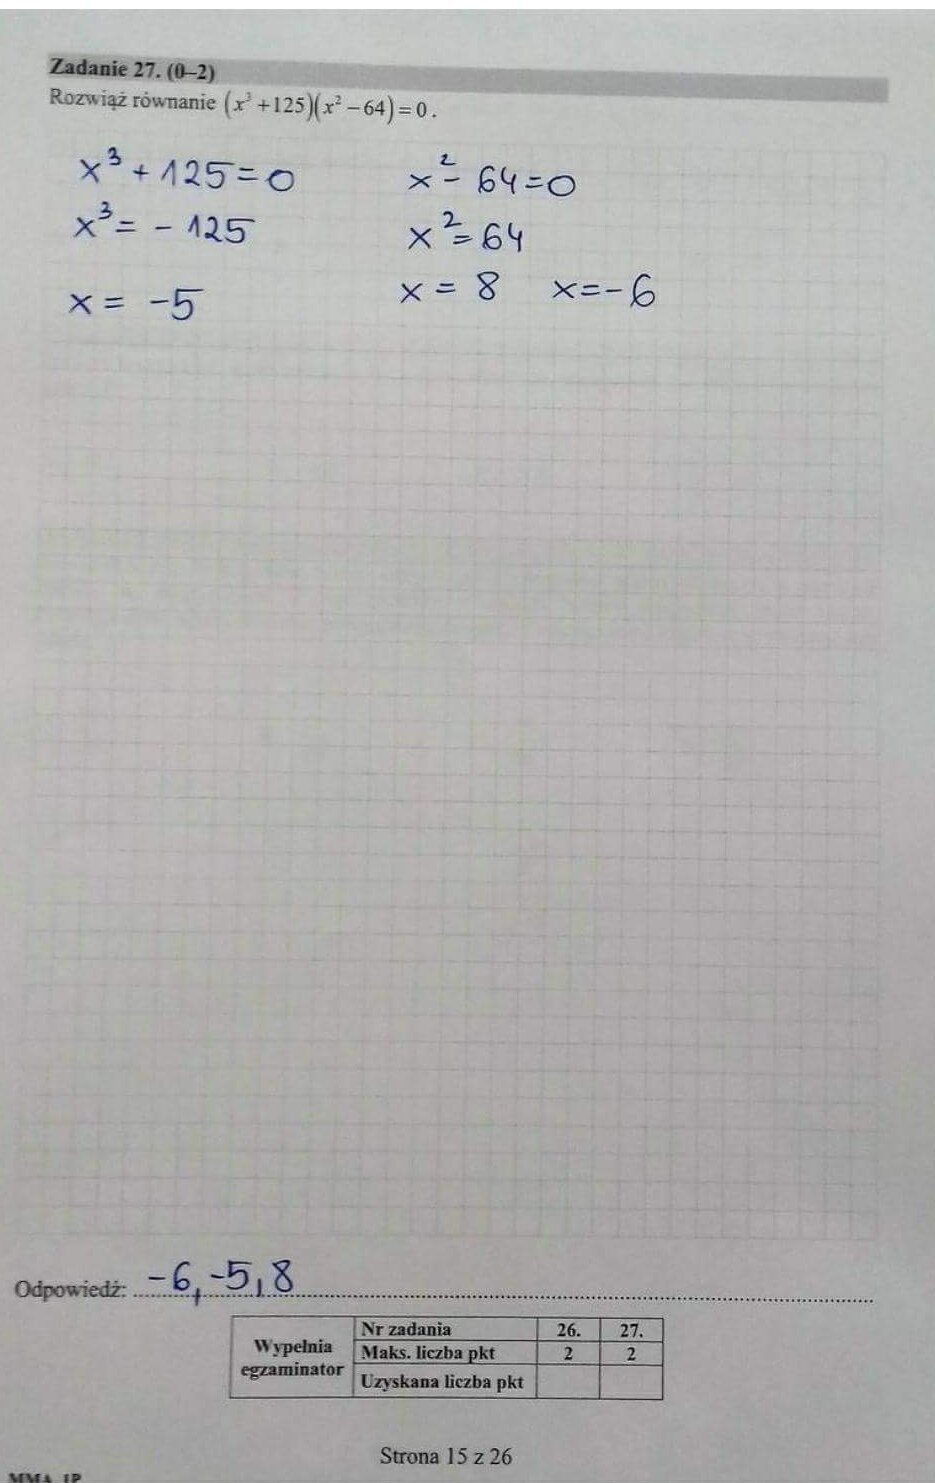 Zadanie 27. (0–2)
Rozwiąż równanie (x³ +125)(x² −64) = 0 .
x³ + 125 = 0 x² - 64 = 0
x³ = - 125 x² = 64
x = -5 x = 8 x = -6
Odpowiedź: -6, -5, 8
Wypełnia egzaminator
Nr zadania 26. 27.
Maks. liczba pkt 2 2
Uzyskana liczba pkt
Strona 15 z 26
MMA_1P